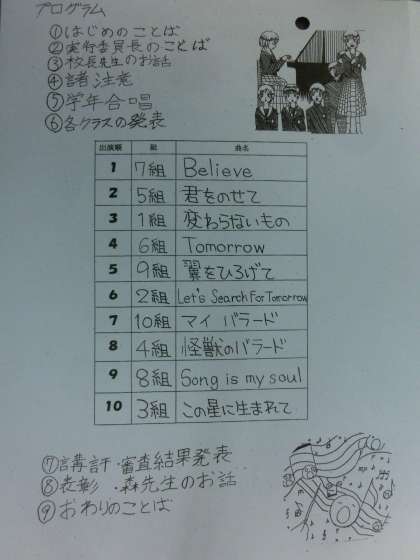 プログラム
①はじめのことば
②実行委員長のことば
③校長先生のお話
④諸注意
⑤学年合唱
⑥各クラスの発表
出演順 組 曲名
1 7組 Believe
2 5組 君をのせて
3 1組 変わらないもの
4 6組 Tomorrow
5 9組 翼をひろげて
6 2組 Let's Search For Tomorrow
7 10組 マイ バラード
8 4組 怪獣のバラード
9 8組 Song is my soul
10 3組 この星に生まれて
⑦講評・審査結果発表
⑧表彰・森先生のお話
⑨おわりのことば